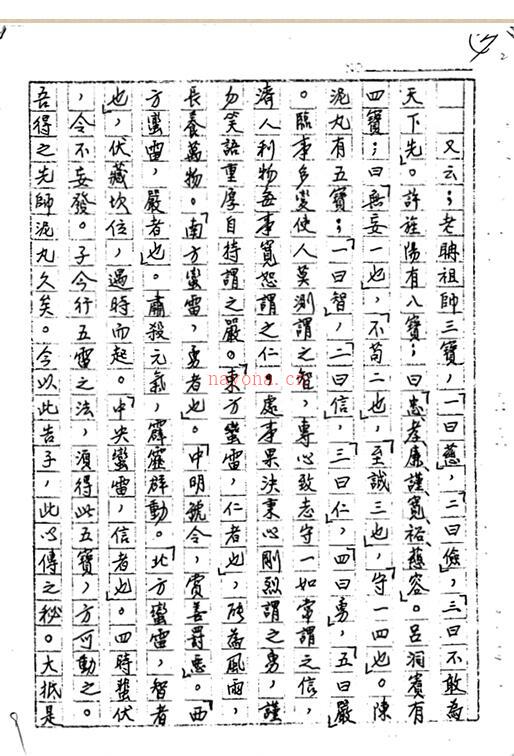 又云；老聃祖師三寶，一曰慈，二曰儉，三曰不敢為
天下先。許旌陽有八寶；曰忠孝廉謹寬裕慈容。呂洞賓有
四寶；曰無妄一也，不苟二也，至誠三也，守一四也。陳
泥丸有五寶；一曰智，二曰信，三曰仁，四曰勇，五曰嚴
。臨事多變使人莫測謂之智，專心致志守一如常謂之信，
濟人利物每事寬恕謂之仁。處事果決秉心剛烈謂之勇，謹
勿笑語重厚自持謂之嚴。東方蠻雷，仁者也，能為風雨，
長養萬物。南方蠻雷，勇者也。申明號令，賞善罰惡。西
方蠻雷，嚴者也。肅殺元氣，霹靂群動。北方蠻雷，智者
也，伏藏坎位，遇時而起。中央蠻雷，信者也。四時蟄伏
，令不妄發。子今行五雷之法，須得此五寶，方可動之。
吾得之先師泥丸久矣。今以此告子，此心傳之秘。大抵是
nayona.cn
2